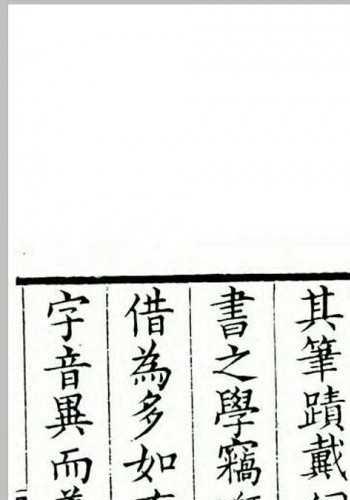 其筆蹟戴
書之學竊
借為多如
字音異而